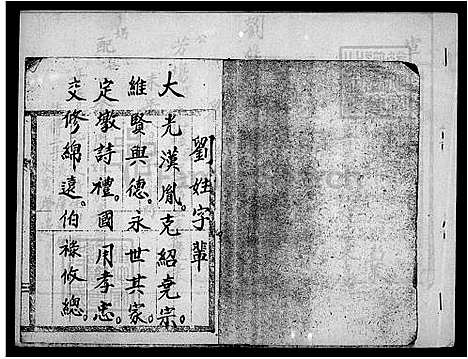 劉姓字輩
大光漢胤。克紹堯宗。
維賢與德。永世其家。
定徵詩禮。國用孝忠。
交修綿遠。伯祿攸總。